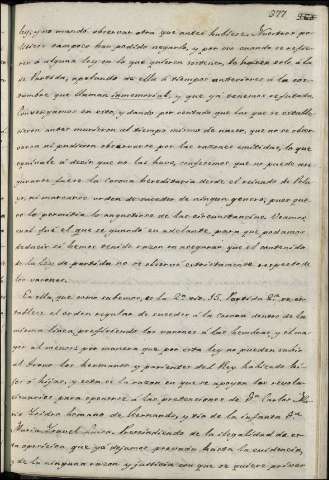 377
ley, y no mando observar otra que antes hubiere. Nuestros politicos tampoco han podido negarlo, y por eso cuando se refieren á alguna ley en lo que quieren sostener, lo hacen solo á la de Partida, apelando de ella á tiempos anteriores á la costumbre que llaman inmemorial, y que ya tenemos refutada.
Convengamos en esto, y dando por sentado que las que se establecieron antes murieron al tiempo mismo de nacer, que no se observaron ni pudieron observarse por las razones emitidas, lo que equivale á decir que no las hubo, confesemos que no puede asegurarse fuese la corona hereditaria desde el reinado de Pelayo, ni marcarse orden de suceder de ningun genero, pues que no lo permitia lo angustioso de las circunstancias. Veamos cual fué el que se guardó en adelante, para que podamos deducir si hemos tenido razon en asegurar que el contenido de la ley de partida no se observó estrictamente respecto de los varones.
En ella, que como sabemos, es la 2ª tit. 15. Partida 2ª se establece el orden regular de suceder á la corona dentro de la misma linea, prefiriendo los varones á las hembras, y el mayor al menor; por manera que por esta ley no pueden subir al trono los hermanos y parientes del Rey habiendo hijos ó hijas, y esta es la razon en que se apoyan los revolucionarios para oponerse á las pretensiones de Dn. Carlos Maria Isidro hermano de Fernando, y tio de la infanta Dª Maria Isabel Luisa. Prescindiendo de la ilegalidad de esta oposicion que ya dejamos probada hasta la evidencia, y de la ninguna razon y justicia con que se quiere privar